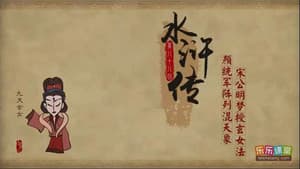 水浒传
第八十八回
宋公明梦授玄女法
颜统军阵列混天象
九天玄女
乐乐课堂
leleketang.com